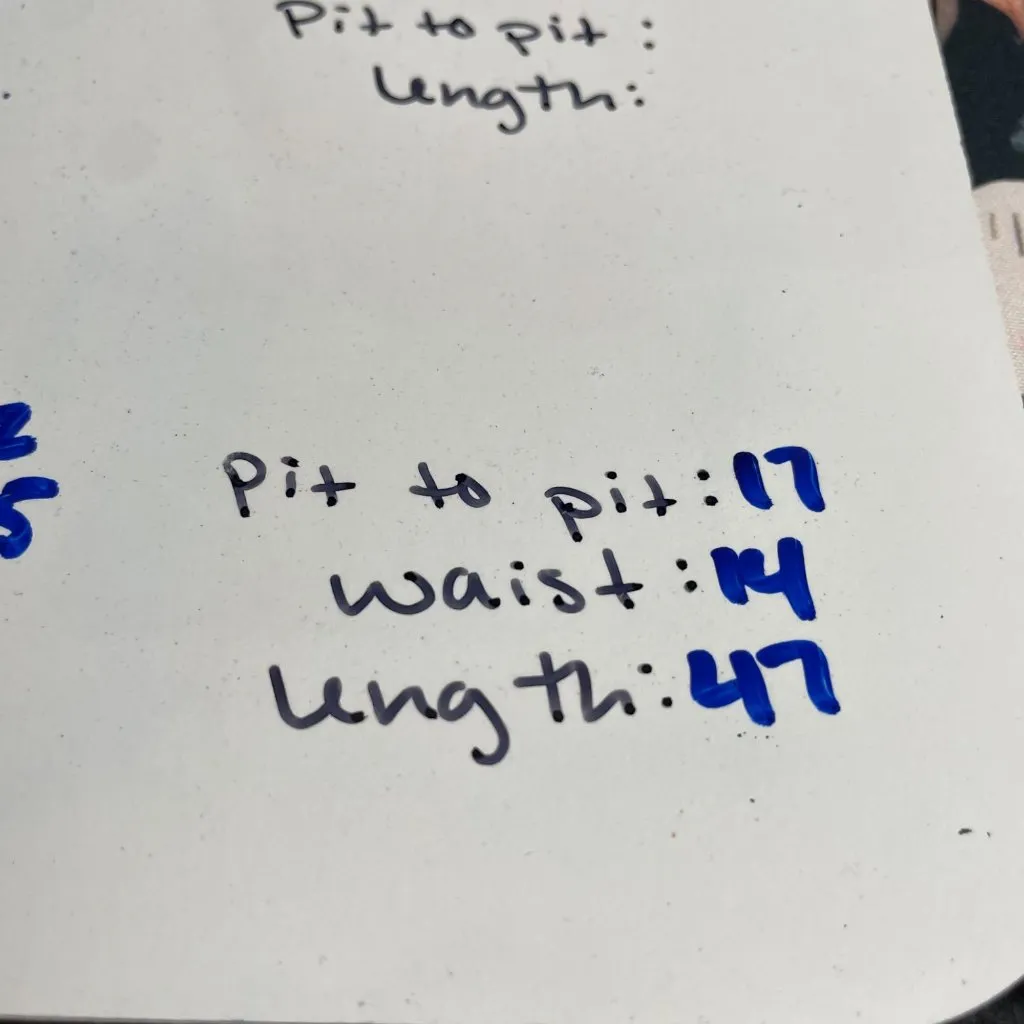 Pit to pit:
length:
Pit to pit: 17
waist: 14
length: 47